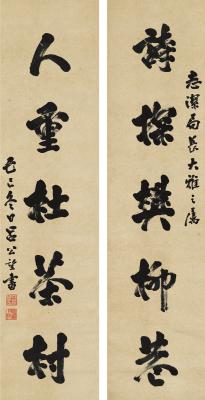 志潔局長大雅之屬
詩探樊柳巷
人重杜茶村
己巳冬日呂公望書